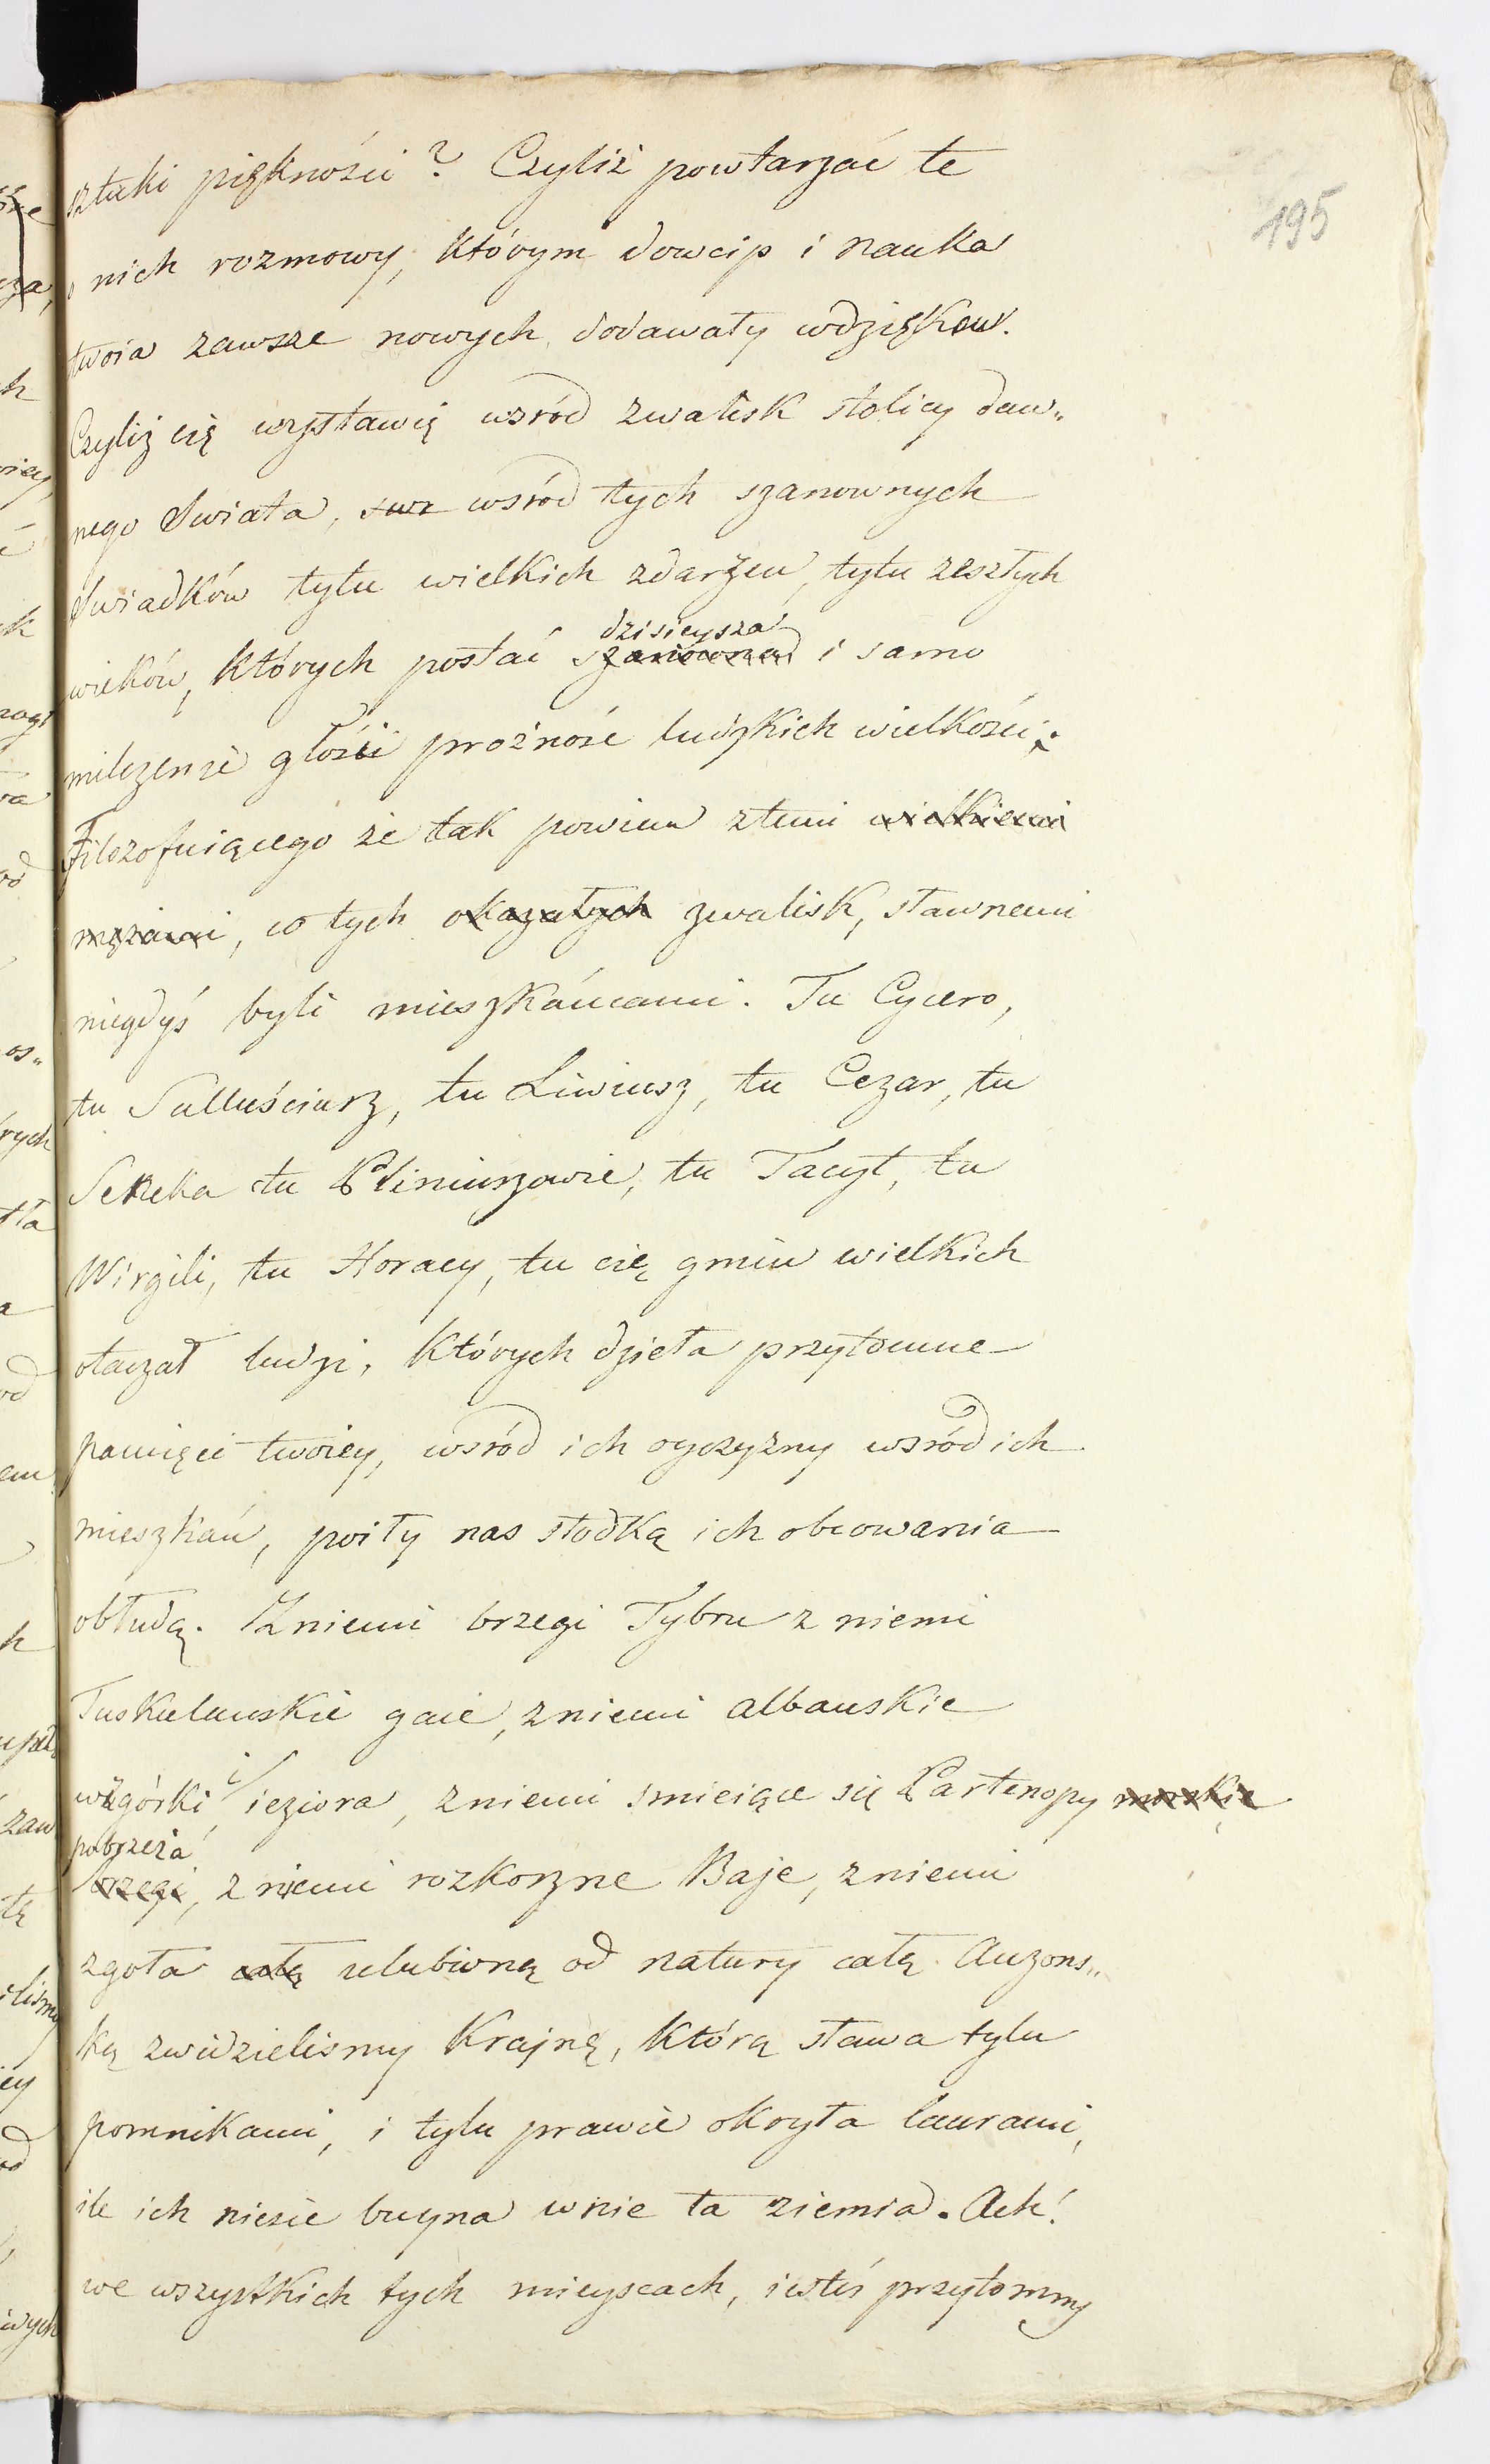 195
sztuki piękności? Czyliż powtarzać te
o nich rozmowy, którym dowcip i nauka
twoia zawsze nowych dodawały wdzięków.
Czyliż cię wystawię wsród zwalisk stolicy daw„
nego Swiata, wsród tych szanownych
Swiadków tylu wielkich zdarzeń, tylu zeszłych
dzisieysza
wieków, których postać szanowna i samo
milczenie głosi prożność ludzkich wielkości;
Filozofuiącego że tak powiem ztemi wielkiemi
mężami, co tych okazałych zwalisk, sławnemi
niegdyś byli mieszkańcami. Tu Cycero,
tu Sallusciusz, tu Liwiusz, tu Cezar, tu
Seneka tu Pliniuszowie, tu Tacyt, tu
Wirgili, tu Horacy, tu cię gmin wielkich
otaczał ludzi, których dzieła przytomne
pamięci twoiey, wsród ich oyczyzny wsród ich
mieszkań, poiły nas słodką ich obcowania
obłudą. Zniemi brzegi Tybru z niemi
Tuskulanskie gaie, zniemi albanskie
wzgórki i ieziora, zniemi smieiące się Partenopy morskie
pobrzeża
brzegi, z niemi rozkoszne Baje, zniemi
zgoła całą ulubioną od natury całą Auzons„
ką zwidzielismy Krajnę, którą sława tylu
pomnikami, i tylu prawie okryła laurami,
ile ich niesie buyna wnie ta ziemia. Ach!
we wszystkich tych mieyscach, iesteś przytomny